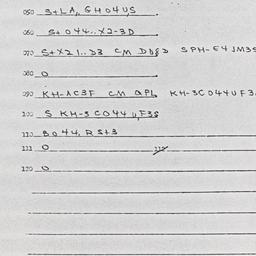 050 S+LA, GHO4U,S
060 S+ O44..X2-3D
070 S+X21..D3 CM DDGD SPH-E4JM3S
080 O
090 KH-AC3F CM QPL KH-3CO44UF3
100 S KH-3 CO44 U,F3S
110 BO44, RS+3
111 O
120 O